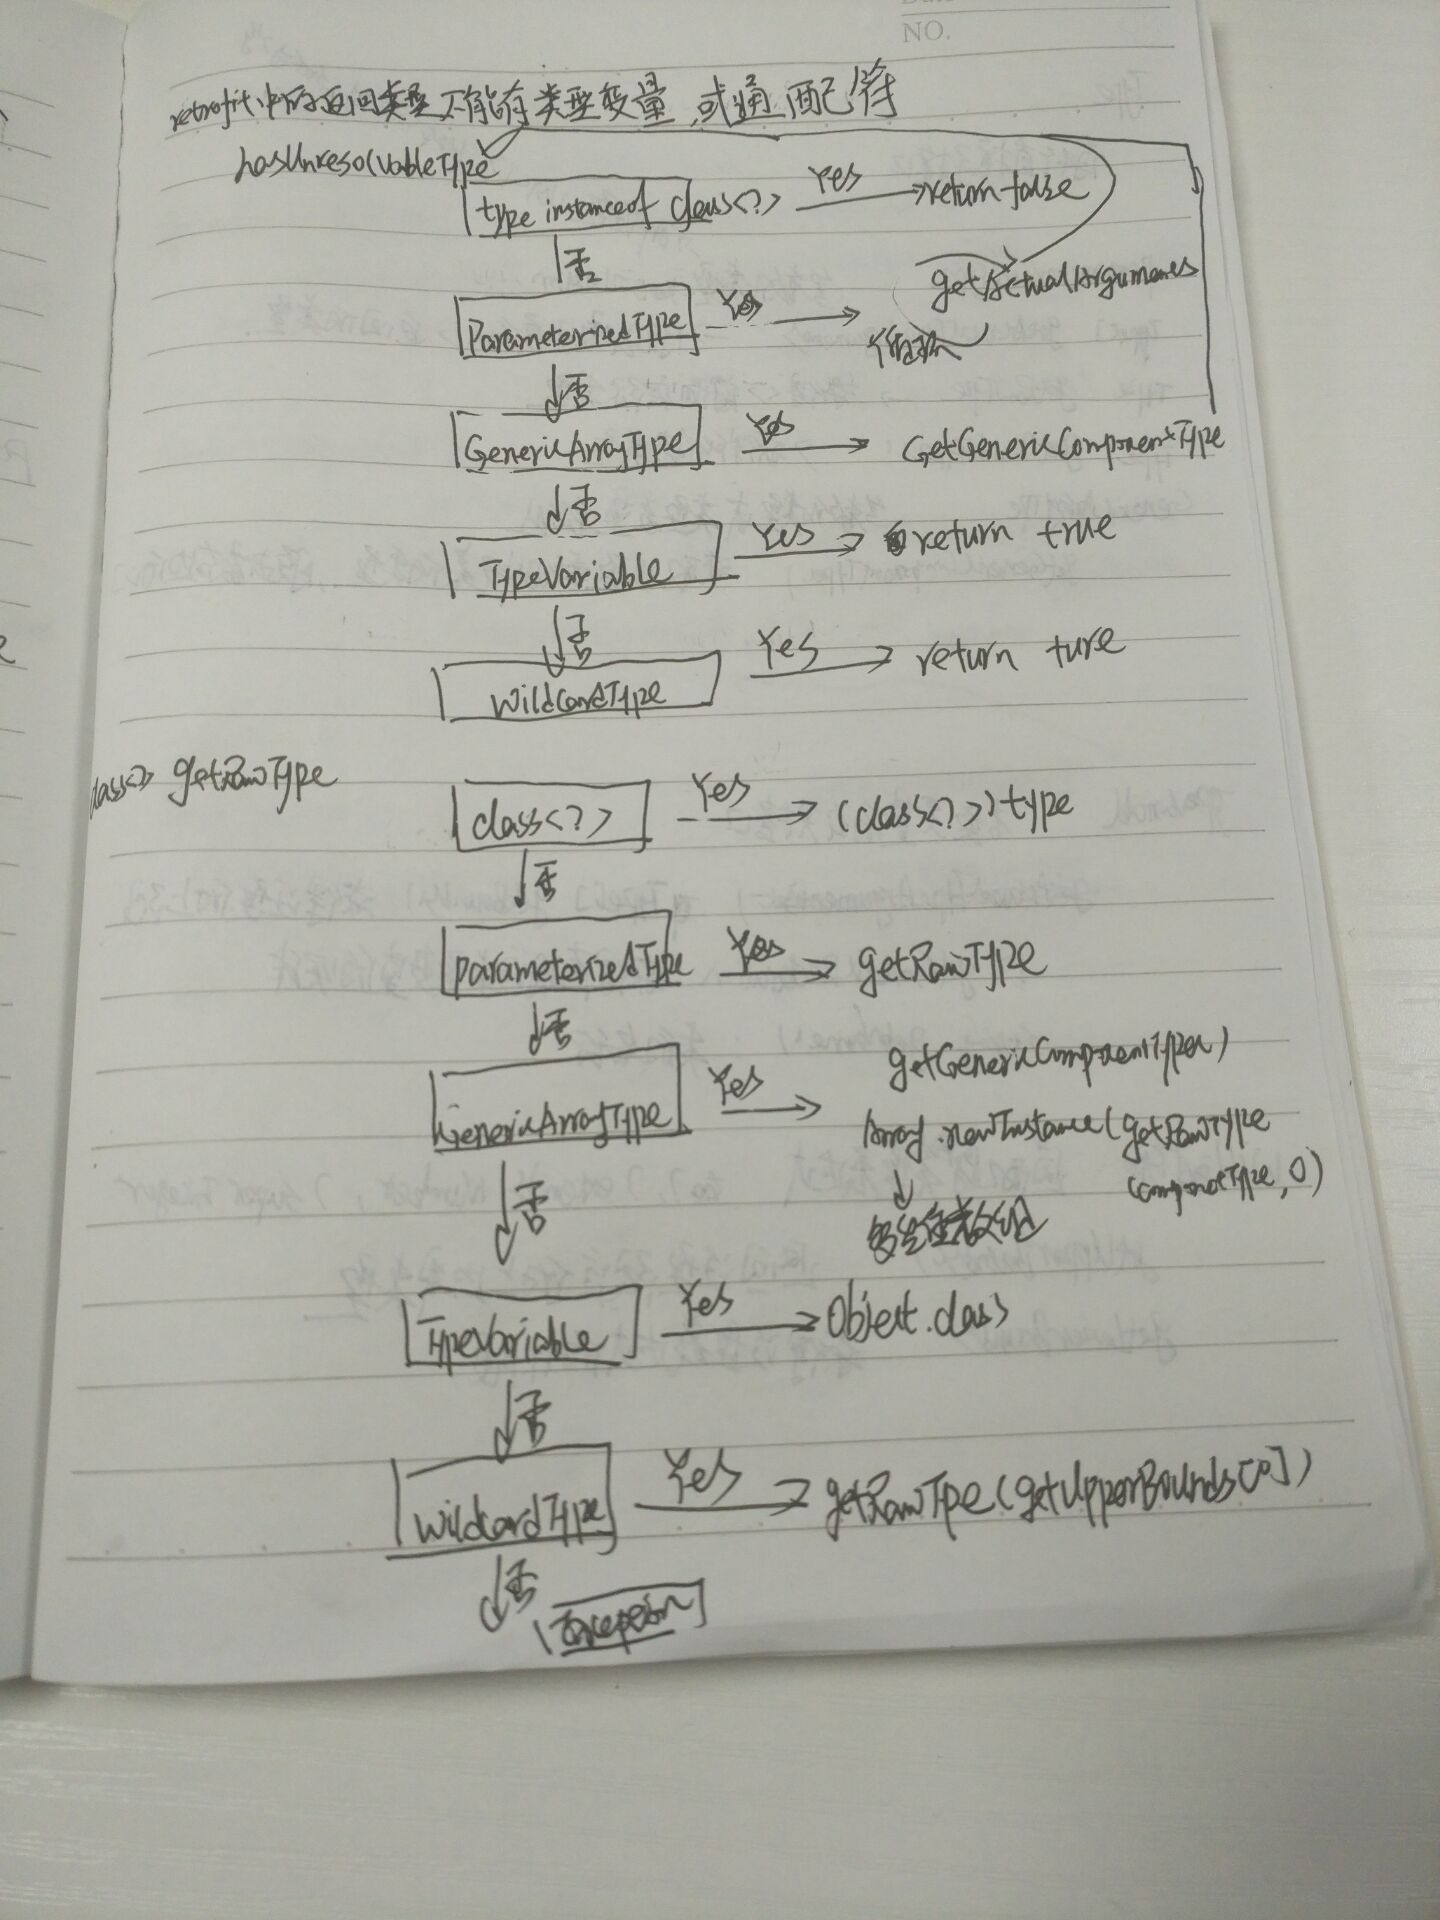 NO.
retrofit中的返回类型不能有类型变量,或通配符
hasUnresolvableType
type instanceof Class<?> Yes return false
否
getActualArguments
ParameterizedType Yes
循环
否
GenericArrayType Yes GetGenericComponentType
否
TypeVariable Yes return true
否
WildcardType Yes return ture
class<?> getRawType
class<?> Yes (class<?>)type
否
parameterizedType Yes getRawType
否
getGenericComponentType()
GenericArrayType Yes
Array.newInstance(getRawType
(componetType,0)
数组
否
TypeVariable Yes Object.class
否
WildcardType Yes getRawTpe(getUpperBounds[0])
否
Exception